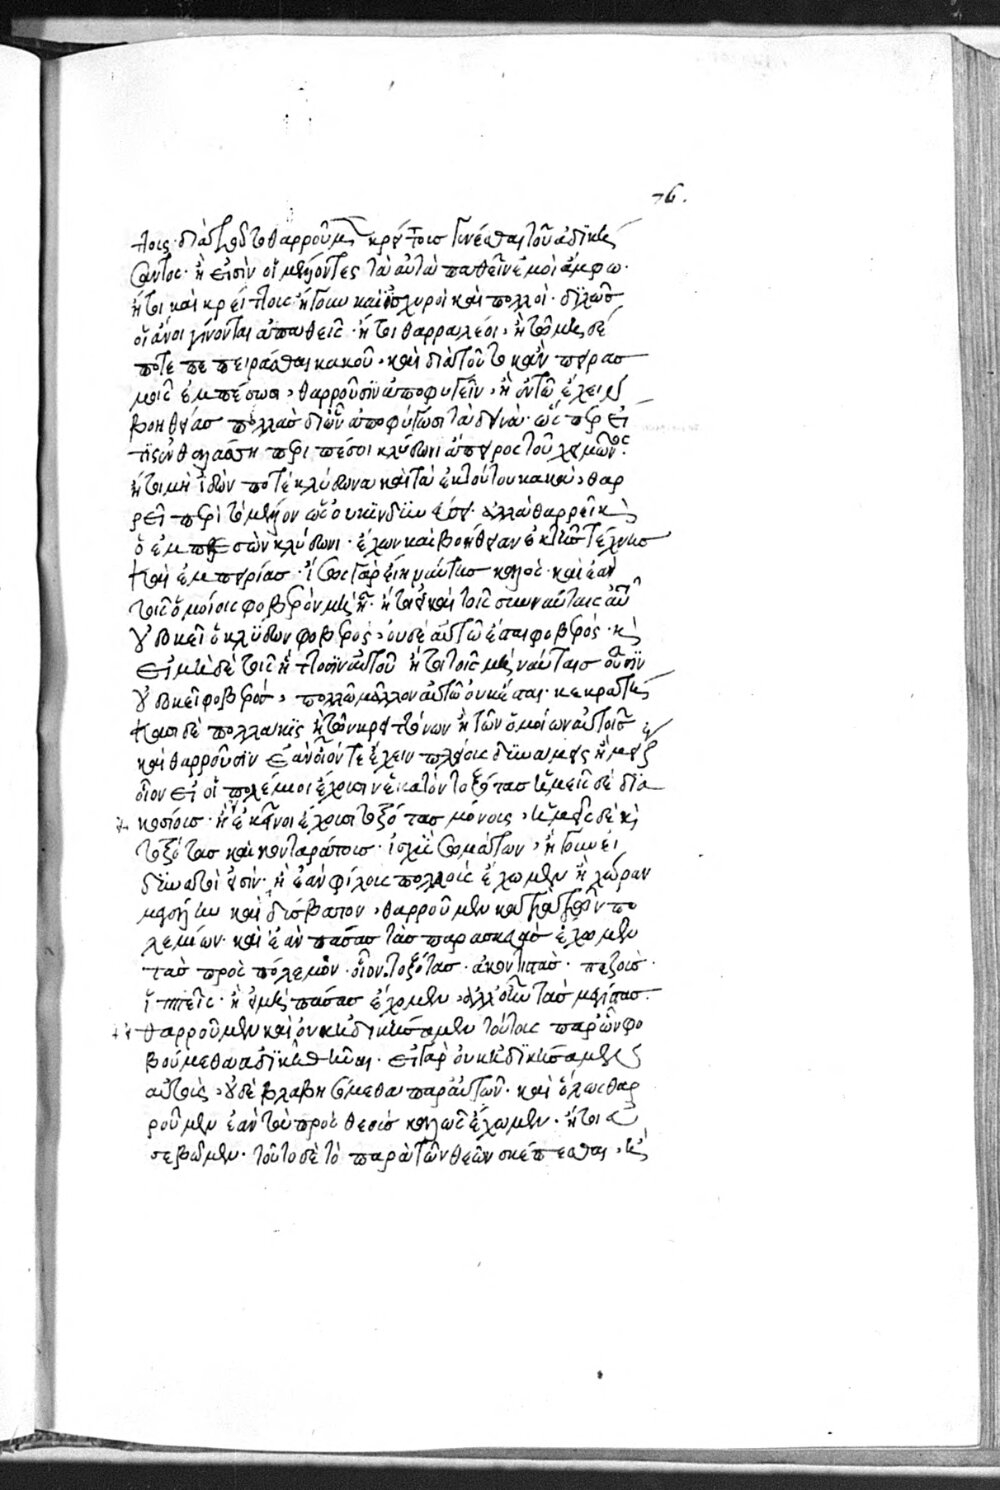 76.
τοις· διὰ τοῦτο θαρροῦμεν κρείττοις γινέσθαι τοῦ ἀδική
σαντος· ἢ εἰσὶν οἱ μείζοντες τὰ αὐτὰ παθεῖν ἐμοὶ ἄμφω·
ἤτοι καὶ κρείττοις ἤγουν καὶ ἰσχυροὶ καὶ πολλοί· διχῶς
οἱ ἄνοι γίνονται ἀπαθεῖς· ἤτοι θαρραλέοι· ἢ τῶ μὴ δέ
ποτε πεπειράσθαι κακοῦ· καὶ διὰ τοῦτο κἂν πειρασ
μοῖς ἐμπέσωσι, θαρροῦσιν ἀποφυγεῖν, ἢ ἐν τῶ ἔχειν
βοηθείας πολλὰς δι' ὧν ἀποφύγωσι τὰ δεινά· ὥσπερ εἴ
τις ἐν θαλάσση περιπέσοι κλύδωνι ἄπειρος τοῦ χειμῶνος·
ἤτοι μὴ ἰδών ποτε κλύδωνα καὶ τὰ ἐκ τούτου κακά, θαρ
ρεῖ περὶ τὸ μέλλον ὡς οὐ κινδυνεύσει· ἀλλὰ θαρρεῖ καὶ
ὁ ἐμπεσὼν κλύδωνι· ἔχων καὶ βοήθειαν ἐκ τῆς τέχνης
καὶ ἐμπειρίας· ἴσως γὰρ εἴη ναύτης καλός· καὶ ἐὰν
τοῖς ὁμοίοις φοβερὸν μὴ ἦ· ἤτοι εἰ καὶ τοῖς συνναύταις αὐτοῦ
οὐ δοκεῖ ὁ κλύδων φοβερός, οὐδὲ αὐτῶ ἔσται φοβερός· καὶ
εἰ μηδὲ τοῖς ἥττοσιν αὐτοῦ ἤτοι τοῖς μὴ ναύταις οὖσιν
οὐ δοκεῖ φοβερός, πολλῶ μᾶλλον αὐτῶ οὐκ ἔσται· κεκρατή
κασι δὲ πολλάκις ἢ τῶν κρειττόνων ἢ τῶν ὁμοίων αὐτοῖς
καὶ θαρροῦσιν ἐὰν οἷόν τε ἔχειν πλείοις δυνάμεις ἢ μείζ
οἷον εἰ οἱ πολέμιοι ἔχουσιν ἑκατὸν τοξότας ἡμεῖς δὲ δια
κοσίους· ἢ ἐκεῖνοι ἔχουσι τοξότας μόνοις, ἡμεῖς δὲ καὶ
τοξότας καὶ κονταράτοις· ἰσχὺς σωμάτων, ἤγουν εἰ
δυνατοί εἰσιν· ἢ ἐὰν φίλοις πολλοῖς ἔχωμεν ἢ χώραν
μεγάλην καὶ δύσβατον, θαρροῦμεν κατὰ τῶν πο
λεμίων· καὶ ἐὰν πάσας τὰς παρασκευὰς ἔχωμεν
τὰς πρὸς πόλεμον· οἷον τοξότας· ἀκοντιστάς· πεζούς·
ἱππεῖς· ἢ εἰ μὴ πάσας ἔχομεν, ἀλλ' οὖν τὰς μεγίστας·
θαρροῦμεν καὶ οὐκ ἠδικήσαμεν τούτοις παρ' ὧν φο
βούμεθα ἀδικηθῆναι· εἰ γὰρ οὐκ ἠδικήσαμεν
αὐτοὺς, οὐδὲ βλαβησόμεθα παρ' αὐτῶν· καὶ ὅλως θαρ
ροῦμεν ἐὰν τὰ πρὸς θεοὺς καλῶς ἔχωμεν· ἤτοι εὐ
σεβῶμεν· τοῦτο δὲ τὸ παρὰ τῶν θεῶν σκέπεσθαι, καὶ